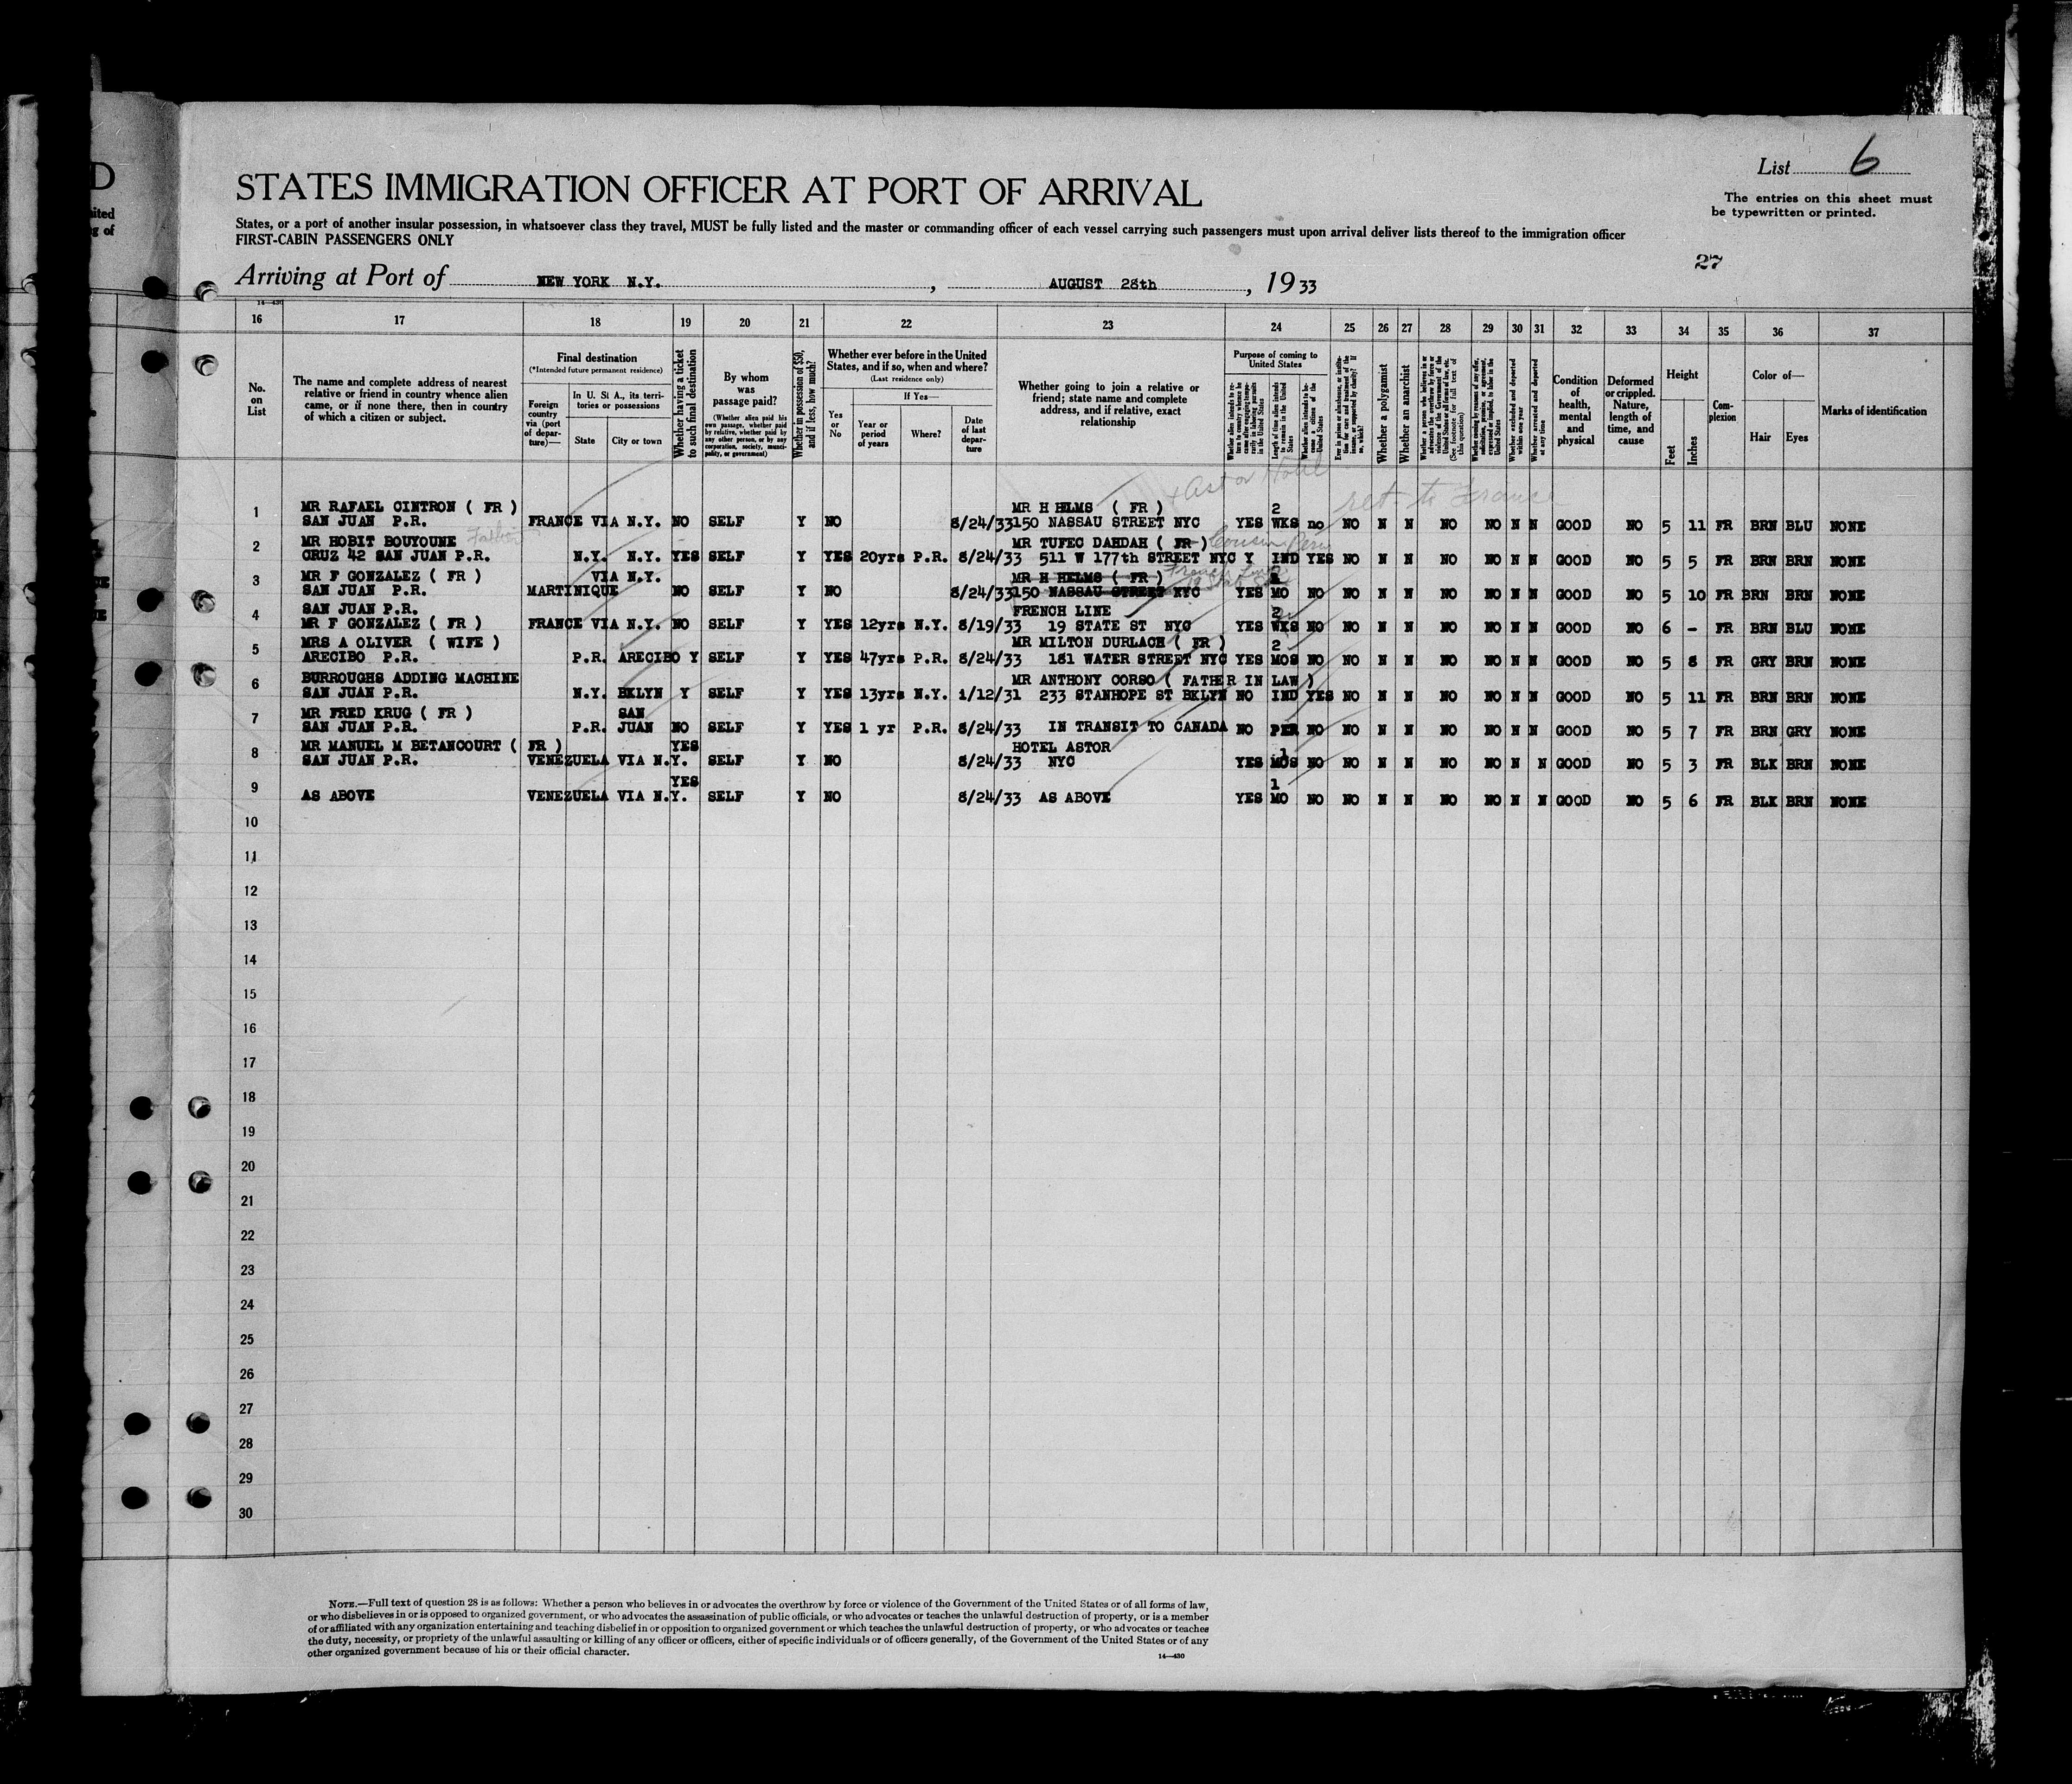 D
List 6
The entries on this sheet must
be typewritten or printed.
STATES IMMIGRATION OFFICER AT PORT OF ARRIVAL
States, or a port of another insular possession, in whatsoever class they travel, MUST be fully listed and the master or commanding officer of each vessel carrying such passengers must upon arrival deliver lists thereof to the immigration officer
FIRST-CABIN PASSENGERS ONLY
27
Arriving at Port of NEW YORK N.Y. , AUGUST 28th , 1933
14—430
16 17 18 19 20 21 22 23 24 25 26 27 28 29 30 31 32 33 34 35 36 37
No. on List
The name and complete address of nearest
relative or friend in country whence alien
came, or if none there, then in country
of which a citizen or subject.
Final destination
(*Intended future permanent residence)
Foreign country via (port of departure)—
In U. S. A., its territories or possessions
State
City or town
Whether having a ticket to such final destination
By whom was passage paid?
(Whether alien paid his own passage, whether paid by relative, whether paid by any other person, or by any corporation, society, municipality, or government)
Whether in possession of $50, and if less, how much?
Whether ever before in the United
States, and if so, when and where?
(Last residence only)
Yes or No
If Yes—
Year or period of years
Where?
Date of last departure
Whether going to join a relative or
friend; state name and complete
address, and if relative, exact
relationship
Purpose of coming to United States
Length of time alien intends to remain in the United States
Whether alien intends to become a citizen of the United States
Whether a polygamist
Whether an anarchist
Condition of health, mental and physical
Deformed or crippled. Nature, length of time, and cause
Height
Feet
Inches
Complexion
Color of—
Hair
Eyes
Marks of identification
Astor Hotel
ret. to France
MR RAFAEL CINTRON ( FR ) MR H HELMS ( FR ) 2
1 SAN JUAN P.R. FRANCE VIA N.Y. NO SELF Y NO 8/24/33 150 NASSAU STREET NYC YES WKS no NO N N NO NO N N GOOD NO 5 11 FR BRN BLU NONE
MR HOBIT BOUYOUNE Father MR TUFEC DAHDAH ( FR ) Cousin
2 CRUZ 42 SAN JUAN P.R. N.Y. N.Y. YES SELF Y YES 20yrs P.R. 8/24/33 511 W 177th STREET NYC Y IND YES NO N N NO NO N N GOOD NO 5 5 FR BRN BRN NONE
MR F GONZALEZ ( FR ) VIA N.Y. MR H HELMS ( FR ) French Line
3 SAN JUAN P.R. MARTINIQUE NO SELF Y NO 8/24/33 150 NASSAU STREET NYC YES MO NO NO N N NO NO N N GOOD NO 5 10 FR BRN BRN NONE
SAN JUAN P.R. FRENCH LINE 2
4 MR F GONZALEZ ( FR ) FRANCE VIA N.Y. NO SELF Y YES 12yrs N.Y. 8/19/33 19 STATE ST NYC YES WKS NO NO N N NO NO N N GOOD NO 6 - FR BRN BLU NONE
MRS A OLIVER ( WIFE ) MR MILTON DURLACH ( FR ) 2
5 ARECIBO P.R. P.R. ARECIBO Y SELF Y YES 47yrs P.R. 8/24/33 181 WATER STREET NYC YES MOS NO NO N N NO NO N N GOOD NO 5 8 FR GRY BRN NONE
BURROUGHS ADDING MACHINE MR ANTHONY CORSO ( FATHER IN LAW )
6 SAN JUAN P.R. N.Y. BKLYN Y SELF Y YES 13yrs N.Y. 1/12/31 233 STANHOPE ST BKLYN NO IND YES NO N N NO NO N N GOOD NO 5 11 FR BRN BRN NONE
MR FRED KRUG ( FR ) SAN
7 SAN JUAN P.R. P.R. JUAN NO SELF Y YES 1 yr P.R. 8/24/33 IN TRANSIT TO CANADA NO PER NO NO N N NO NO N N GOOD NO 5 7 FR BRN GRY NONE
MR MANUEL M BETANCOURT ( FR ) YES HOTEL ASTOR 1
8 SAN JUAN P.R. VENEZUELA VIA N.Y. SELF Y NO 8/24/33 NYC YES MOS NO NO N N NO NO N N GOOD NO 5 3 FR BLK BRN NONE
YES 1
9 AS ABOVE VENEZUELA VIA N.Y. SELF Y NO 8/24/33 AS ABOVE YES MO NO NO N N NO NO N N GOOD NO 5 6 FR BLK BRN NONE
10
11
12
13
14
15
16
17
18
19
20
21
22
23
24
25
26
27
28
29
30
NOTE.—Full text of question 28 is as follows: Whether a person who believes in or advocates the overthrow by force or violence of the Government of the United States or of all forms of law,
or who disbelieves in or is opposed to organized government, or who advocates the assassination of public officials, or who advocates or teaches the unlawful destruction of property, or is a member
of or affiliated with any organization entertaining and teaching disbelief in or opposition to organized government or which teaches the unlawful destruction of property, or who advocates or teaches
the duty, necessity, or propriety of the unlawful assaulting or killing of any officer or officers, either of specific individuals or of officers generally, of the Government of the United States or of any
other organized government because of his or their official character.
14—430